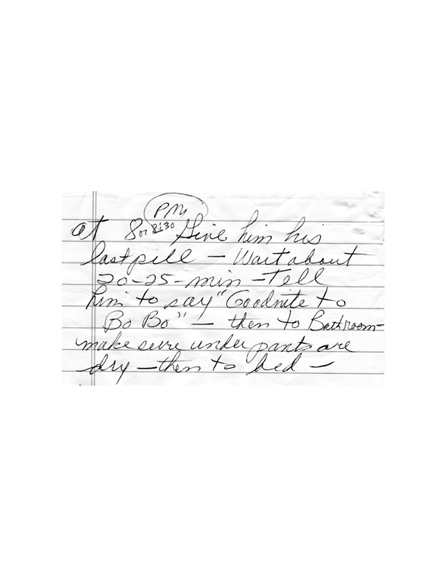 PM
at 8 or 8:30 Give him his
last pill — Wait about
20-25-min — Tell
him to say "Goodnite to
Bo Bo" — then to Bathroom —
make sure under pants are
dry — then to bed —